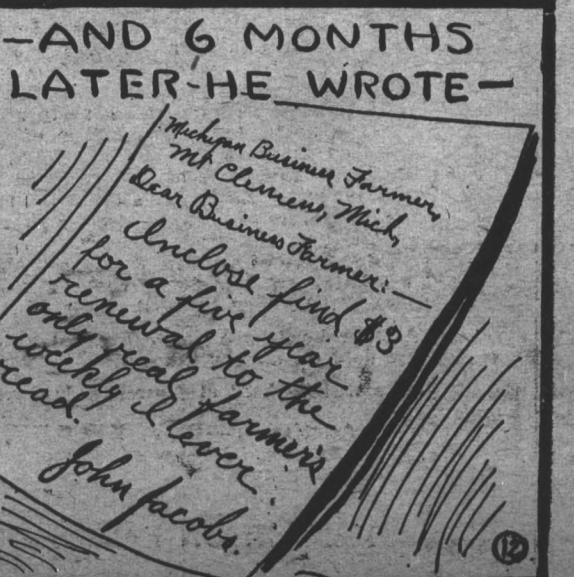 —AND 6 MONTHS
LATER-HE WROTE—
Michigan Business Farmer,
Mt Clemens, Mich,
Dear Business Farmer:—
Inclose find $3
for a five year
renewal to the
only real farmer's
weekly I ever
read.
John Jacobs.
12